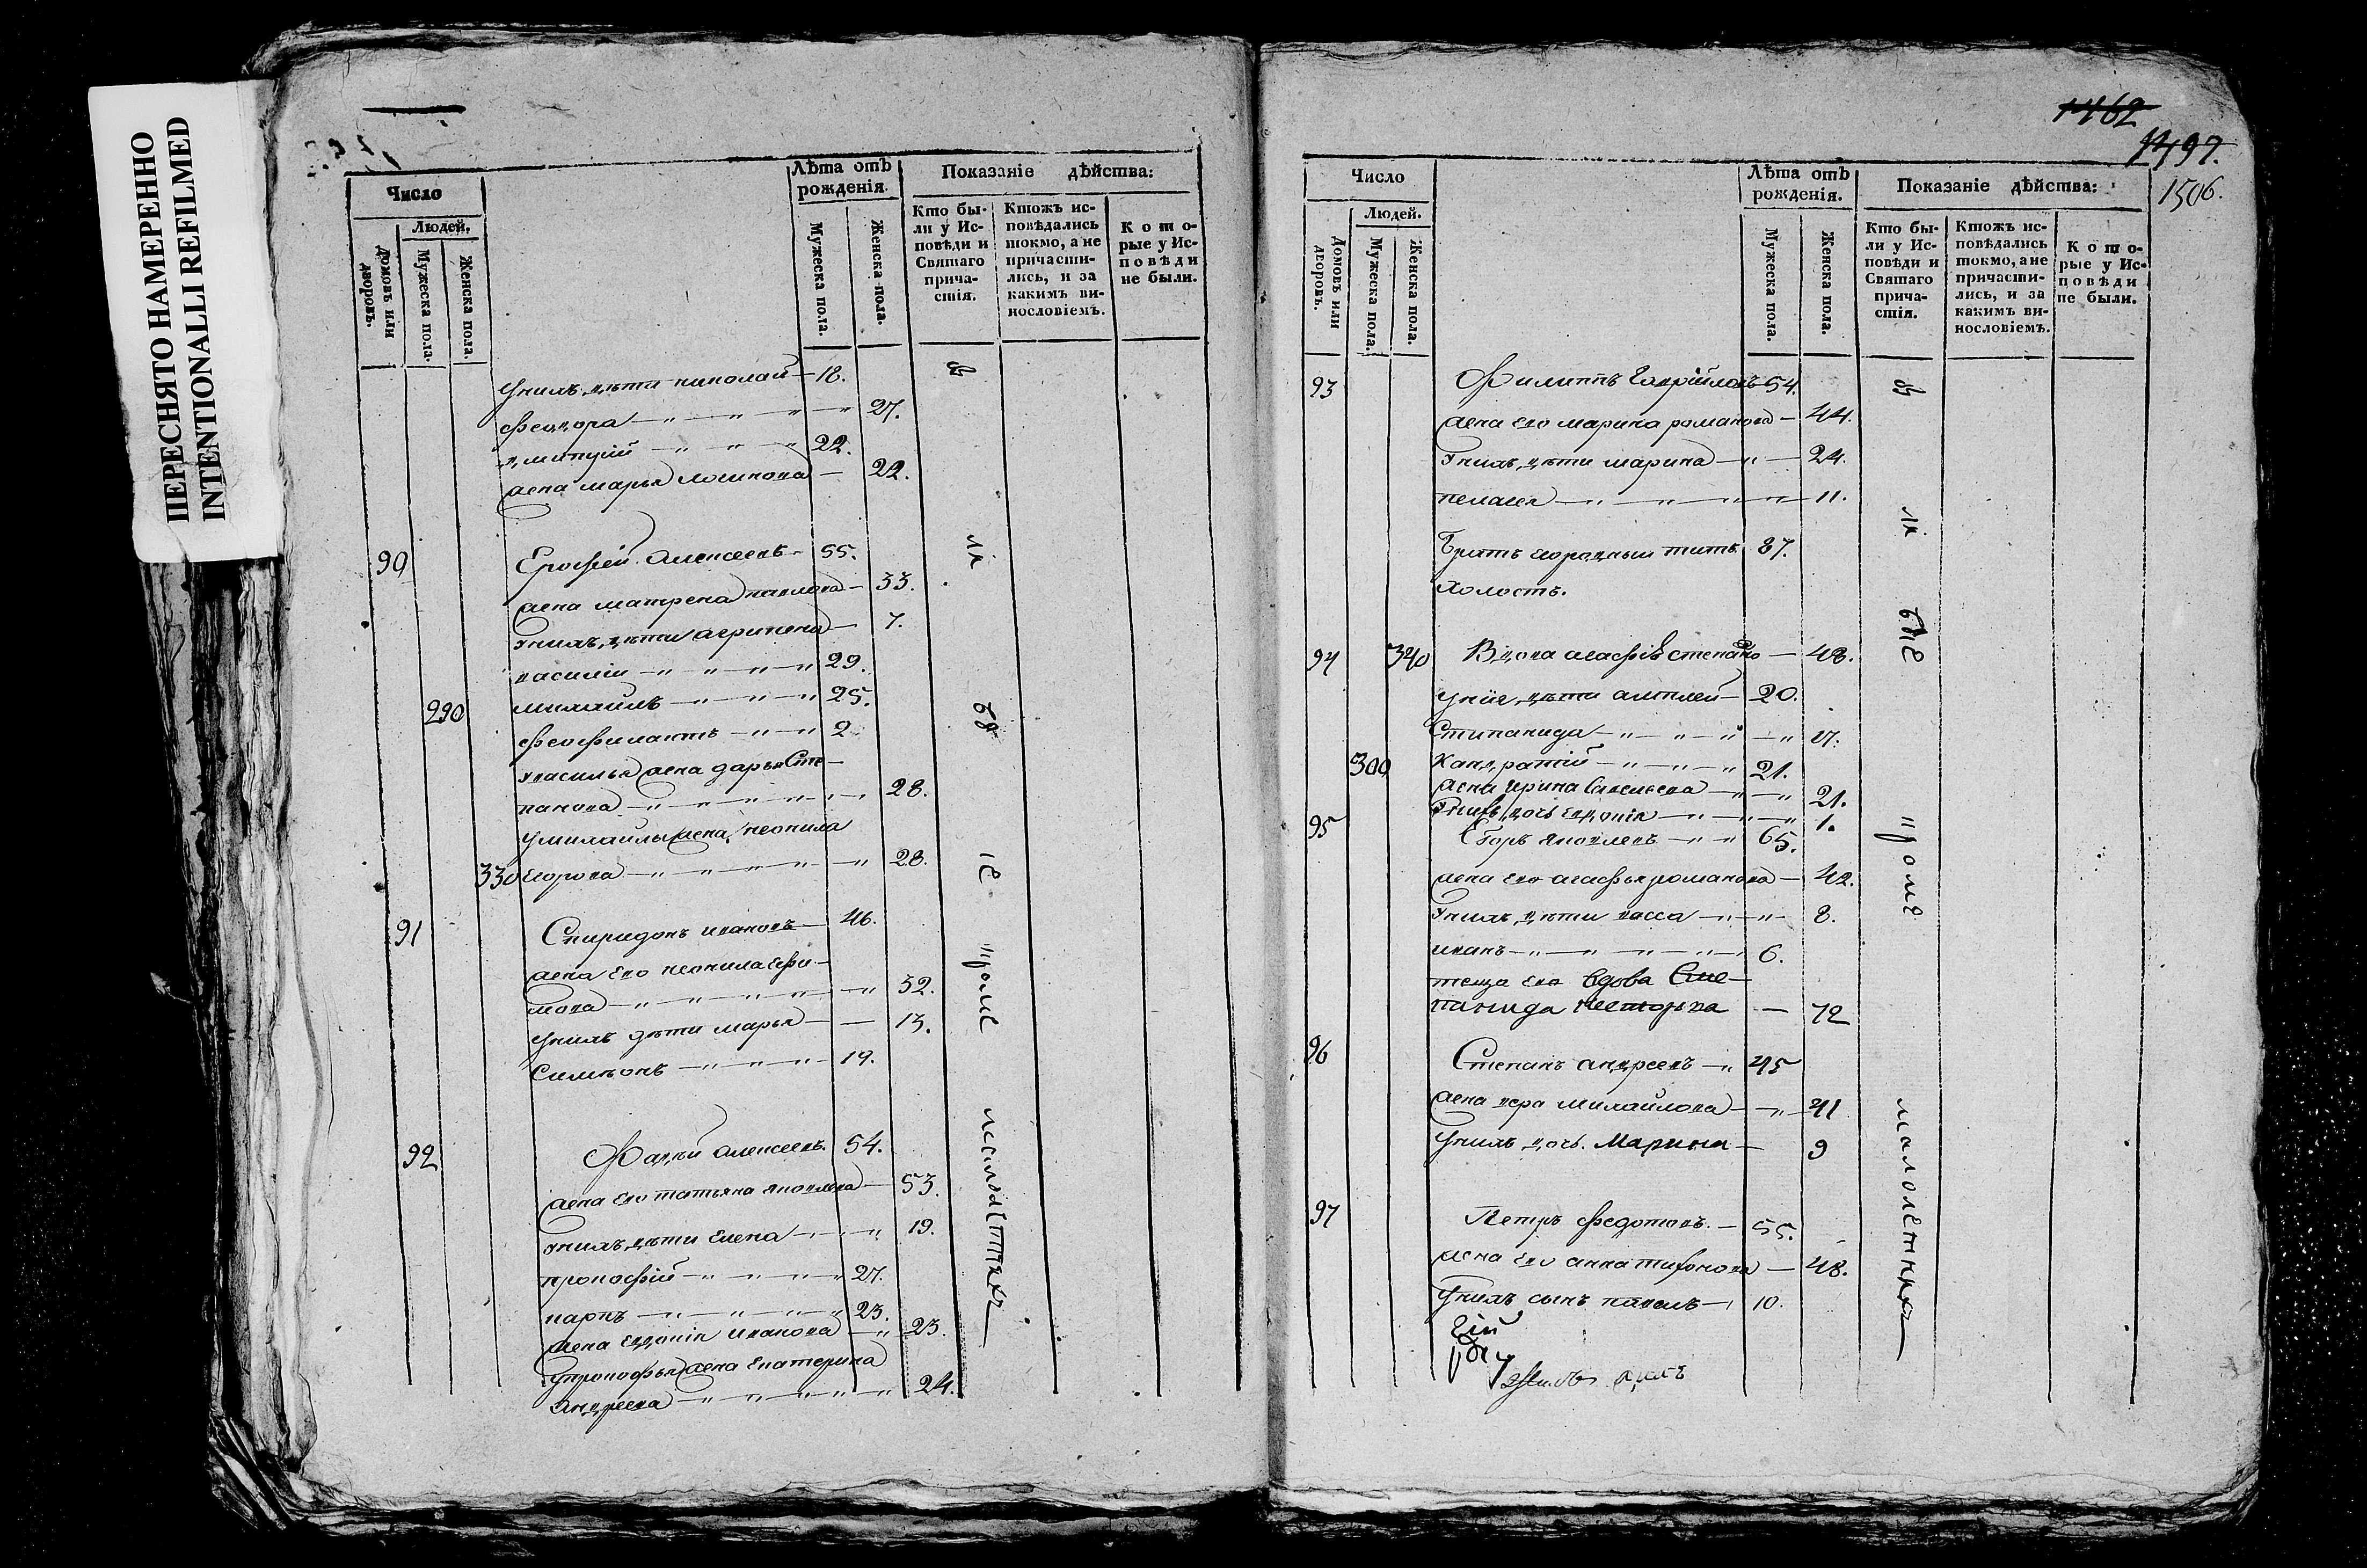 ПЕРЕСНЯТО НАМЕРЕННО
INTENTIONALLI REFILMED
Число
Людей.
Домовъ или дворовъ.
Мужеска пола.
Женска пола.
Лѣта отъ рожденія.
Мужеска пола.
Женска пола.
Показаніе дѣйства:
Кто были у Исповѣди и Святаго причастія.
Ктожъ исповѣдались токмо, а не причастились, и за какимъ винословіемъ.
Которые у Исповѣди не были.
унихъ дѣти николай 18.
феодора 27.
димитрій 22.
жена марья 22.
90 Ерофѣй Алексеевъ 55.
жена матрена павлова 33.
унихъ дѣти агрипена 7.
василій 29.
290 михаилъ 25.
феофилактъ 2
увасилья жена дарья Сте-
панова 28.
умихаилы жена неонила
330 егорова 28.
91 Спиридонъ ивановъ 46.
жена его неонила ефи-
мова 32.
унихъ дѣти марья 13.
Симеонъ 19.
92 Фадѣй Алексеевъ 54.
жена его татьяна яковлева 53.
унихъ дѣти Елена 19.
прокофій 27.
карпъ 23.
жена евдокія иванова 23.
упрокофья жена екатерина
Андреева 24.
1462
1497.
1506.
Число
Людей.
Домовъ или дворовъ.
Мужеска пола.
Женска пола.
Лѣта отъ рожденія.
Мужеска пола.
Женска пола.
Показаніе дѣйства:
Кто были у Исповѣди и Святаго причастія.
Ктожъ исповѣдались токмо, а не причастились, и за какимъ винословіемъ.
Которые у Исповѣди не были.
93 Филиппъ Гаврійловъ 54.
жена его марина романова 44.
унихъ дѣти марина 24.
пелагея 11.
Братъ двородный титъ 87.
холостъ.
94 340 Вдова агафія степано 48.
унiе дѣти 20.
Стипанида 17.
300 Кандратій 21.
жена ирина Савельева 21.
унихъ дочь евдокія 1.
95 Егоръ яковлевъ 65.
жена его агафья романова 42.
унихъ дѣти васса 8.
иванъ 6.
теща его вдова Сте-
панида Несторва 72
96 Степанъ андреевъ 45
жена вера михайлова 41
унихъ дочь Марина 9
97 Петръ федотовъ 55.
жена его анна тихонова 48.
унихъ сынъ павелъ 10.